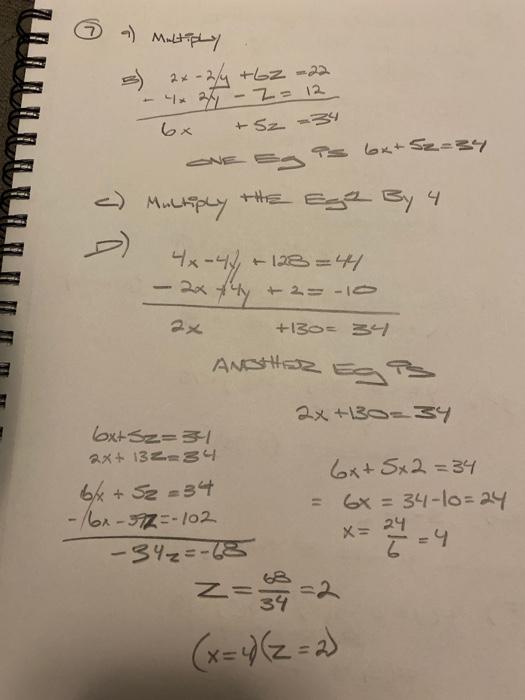 7 a) Multiply
B) 2x - 2y + 6z = 22
+ 4x 2y - z = 12
6x + 5z = 34
ONE Eq is 6x + 5z = 34
c) Multiply the Eq 2 By 4
D)
4x - 4y + 128 = 44
- 2x + 4y + 2 = -10
2x +130 = 34
ANOTHER Eq is
2x + 130 = 34
6x + 5z = 34
2x + 13z = 34
6x + 5z = 34
- 6x - 39z = -102
-34z = -68
z = 68/34 = 2
6x + 5x2 = 34
= 6x = 34 - 10 = 24
x = 24/6 = 4
(x = 4) (z = 2)